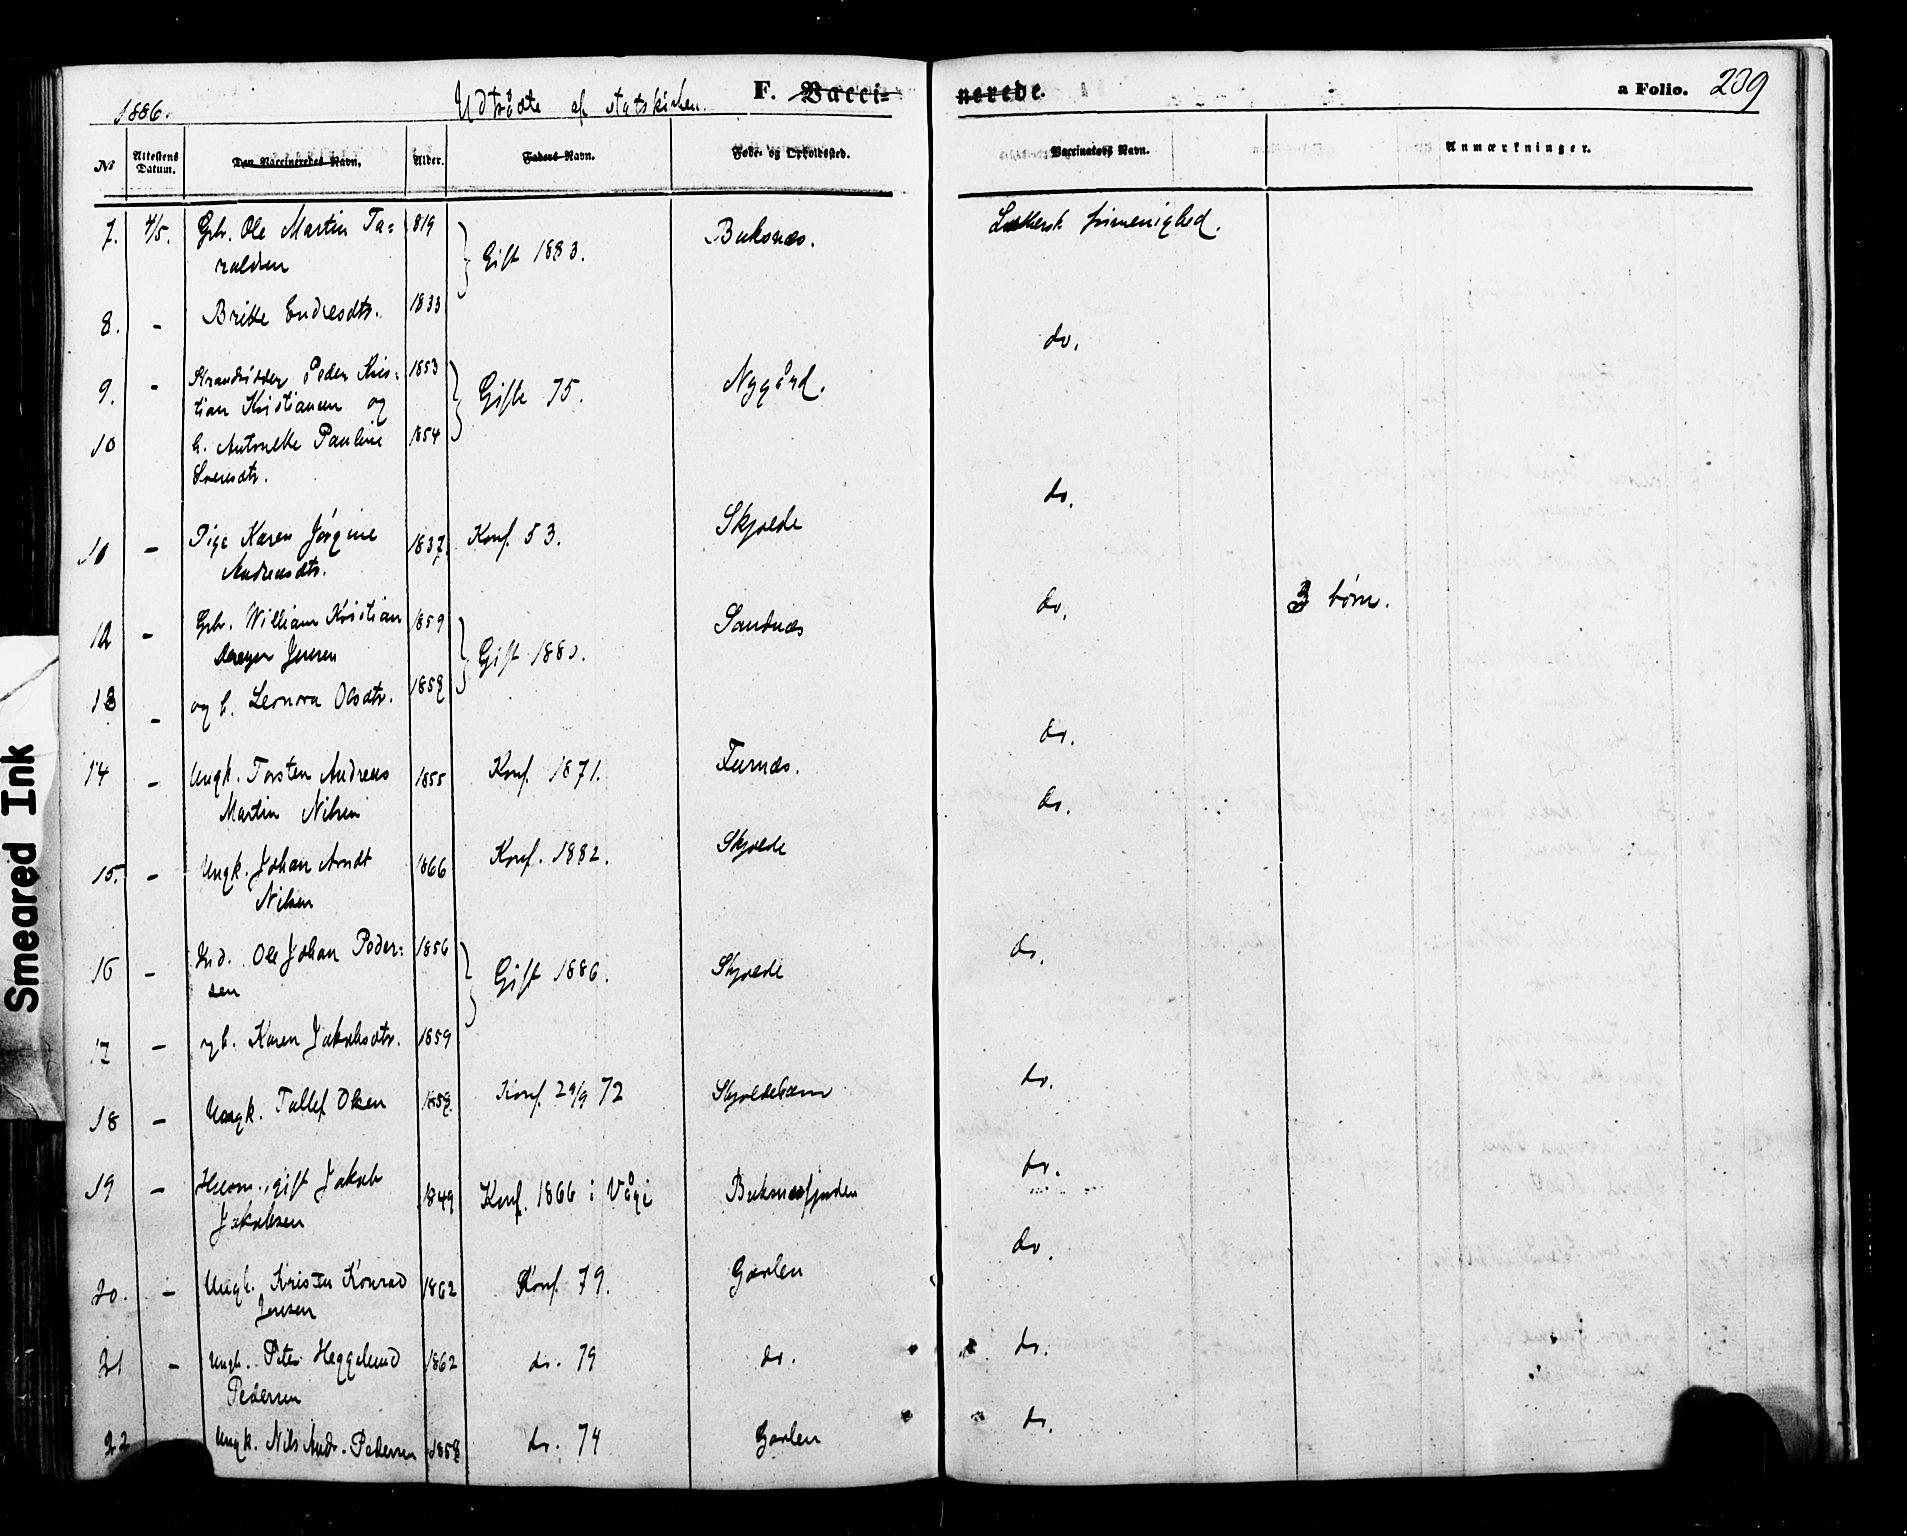 1886. Udtrådte af statskirken. F. Vacci= nerede. a Folio. 209
No Attestens Datum. Den Vaccineredes Navn. Alder. Faders Navn. Føde- og Opholdssted. Vaccinators Navn. Anmærkninger.
7. 4/5. Gbr. Ole Martin Ta= 1819 Gift 1883. Buksnæs. Luthersk frimenighed.
raldsen
8. - Britte Endresdtr. 1833 do.
9. - Strandsidder Peder Kris= 1853 Gifte 75. Nygård.
tian Kristiansen og
10 h. Antonette Pauline 1854
Sørensdtr. do.
11 - Pige Karen Jørgine 1837. Konf. 53. Skjolde
Andreasdtr.
12 - Gbr. William Kristian 1859 Gift 1880. Sandnæs do. 3 børn.
Jensen
13 - og h. Leonora Olsdtr. 1858
do.
14 - Ungk. Torsten Andreas 1855 Konf. 1871. Furnæs.
Martin Nilsen do.
15. - Ungk. Johan Arndt 1866 Konf. 1882. Skjolde
Nilsen
16 - Ind. Ole Johan Peder= 1856 Gift 1886. Skjolde do.
sen
17 - og h. Karen Jakobsdtr. 1859
18 - Ungk. Tollef Olsen 1858. Konf. 29/9 72 Skjoldehavn do.
19 - gift Jakob 1849 Konf. 1866 i Vågø Buksnæsfjorden do.
Jakobsen
20. - Ungk. Kristen Konrad 1862 Konf. 79. Gården do.
Jensen
21 - Ungk. Peter Heggelund 1862 do. 79 do. do.
Pedersen
22 Ungk. Nils Andr. Pedersen 1858 do. 74 Gården do.
Smeared Ink